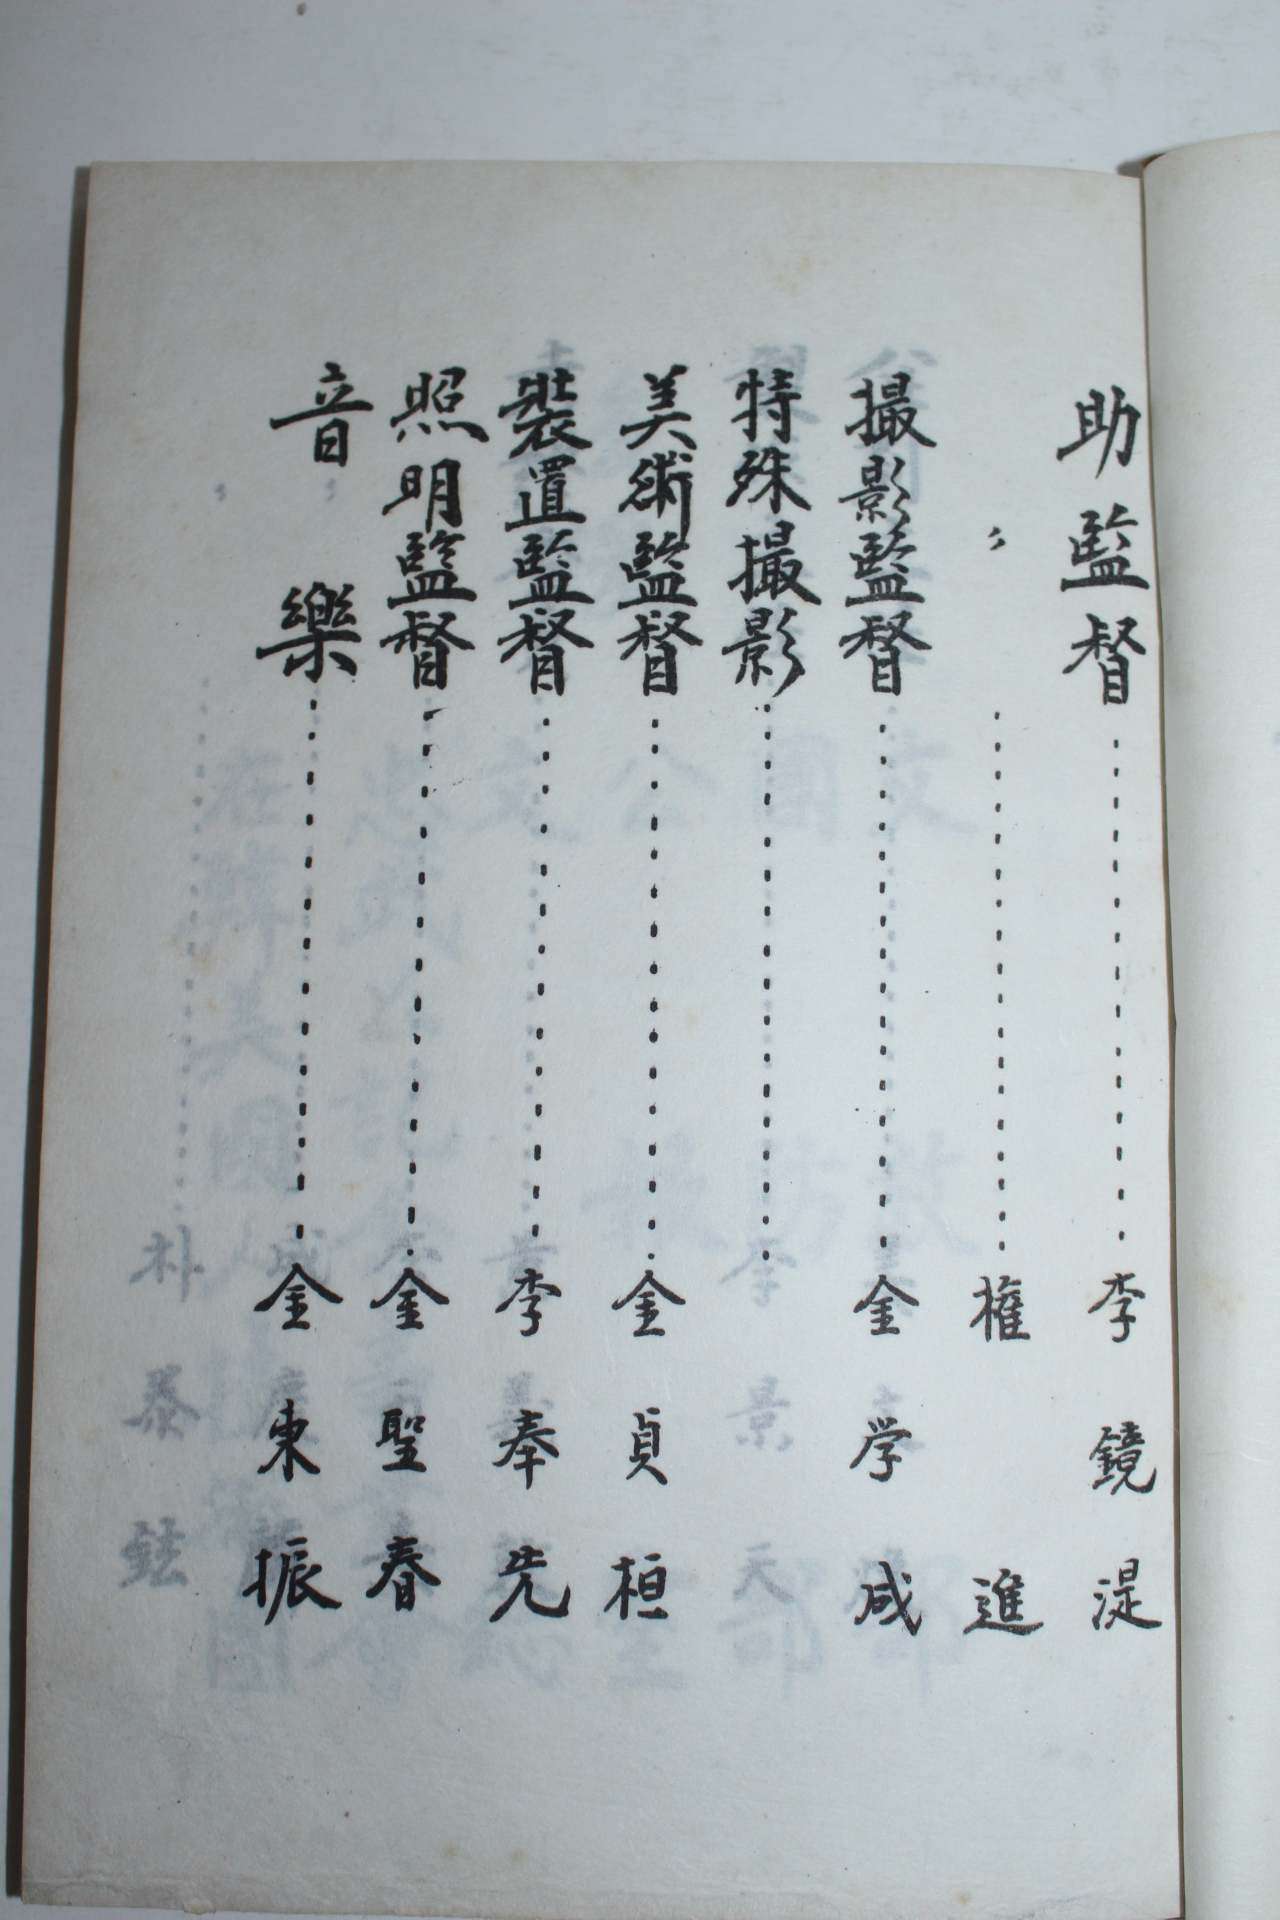 助監督………………李鏡湜
〃………………権進
撮影監督………………金学成
特殊撮影………………
美術監督………………金貞桓
裝置監督………………李奉先
照明監督………………金聖春
音樂………………金東振